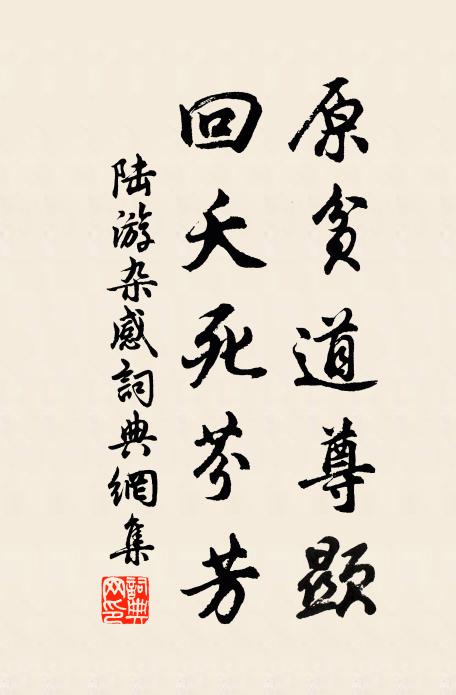 原貧道尊顯
回夭死芬芳
陆游杂感詞典網集
詞典网印